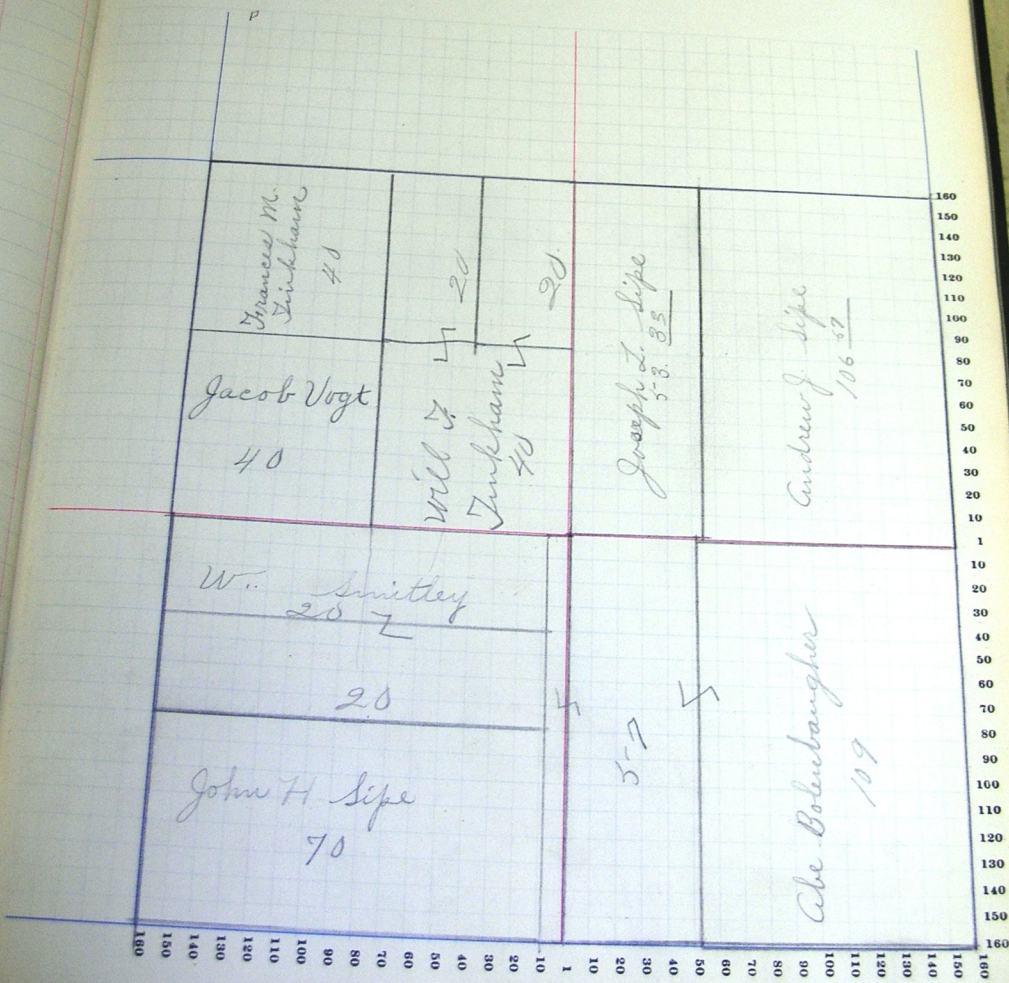 P
Frances M.
Tinkham
40
20
20.
Jacob Vogt
40
Will F.
Tinkham
40
Joseph L. Sipe
53. 33
Andrew J. Sipe
106 67
W.. Smitley
20
20
John H Sipe
70
57
Abe Bolenbaugher
109
160
150
140
130
120
110
100
90
80
70
60
50
40
30
20
10
1
10
20
30
40
50
60
70
80
90
100
110
120
130
140
150
160
160 150 140 130 120 110 100 90 80 70 60 50 40 30 20 10 1 10 20 30 40 50 60 70 80 90 100 110 120 130 140 150 160